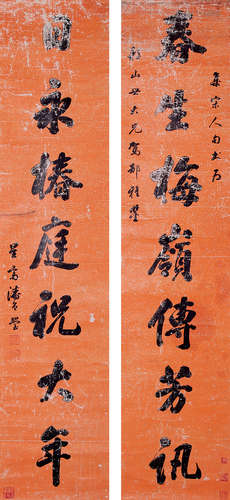 集宋人句書為
山世大兄駕部雅鑒
春梅嶺傳芳訊
日永椿庭祝大年
星齋潘曾瑩